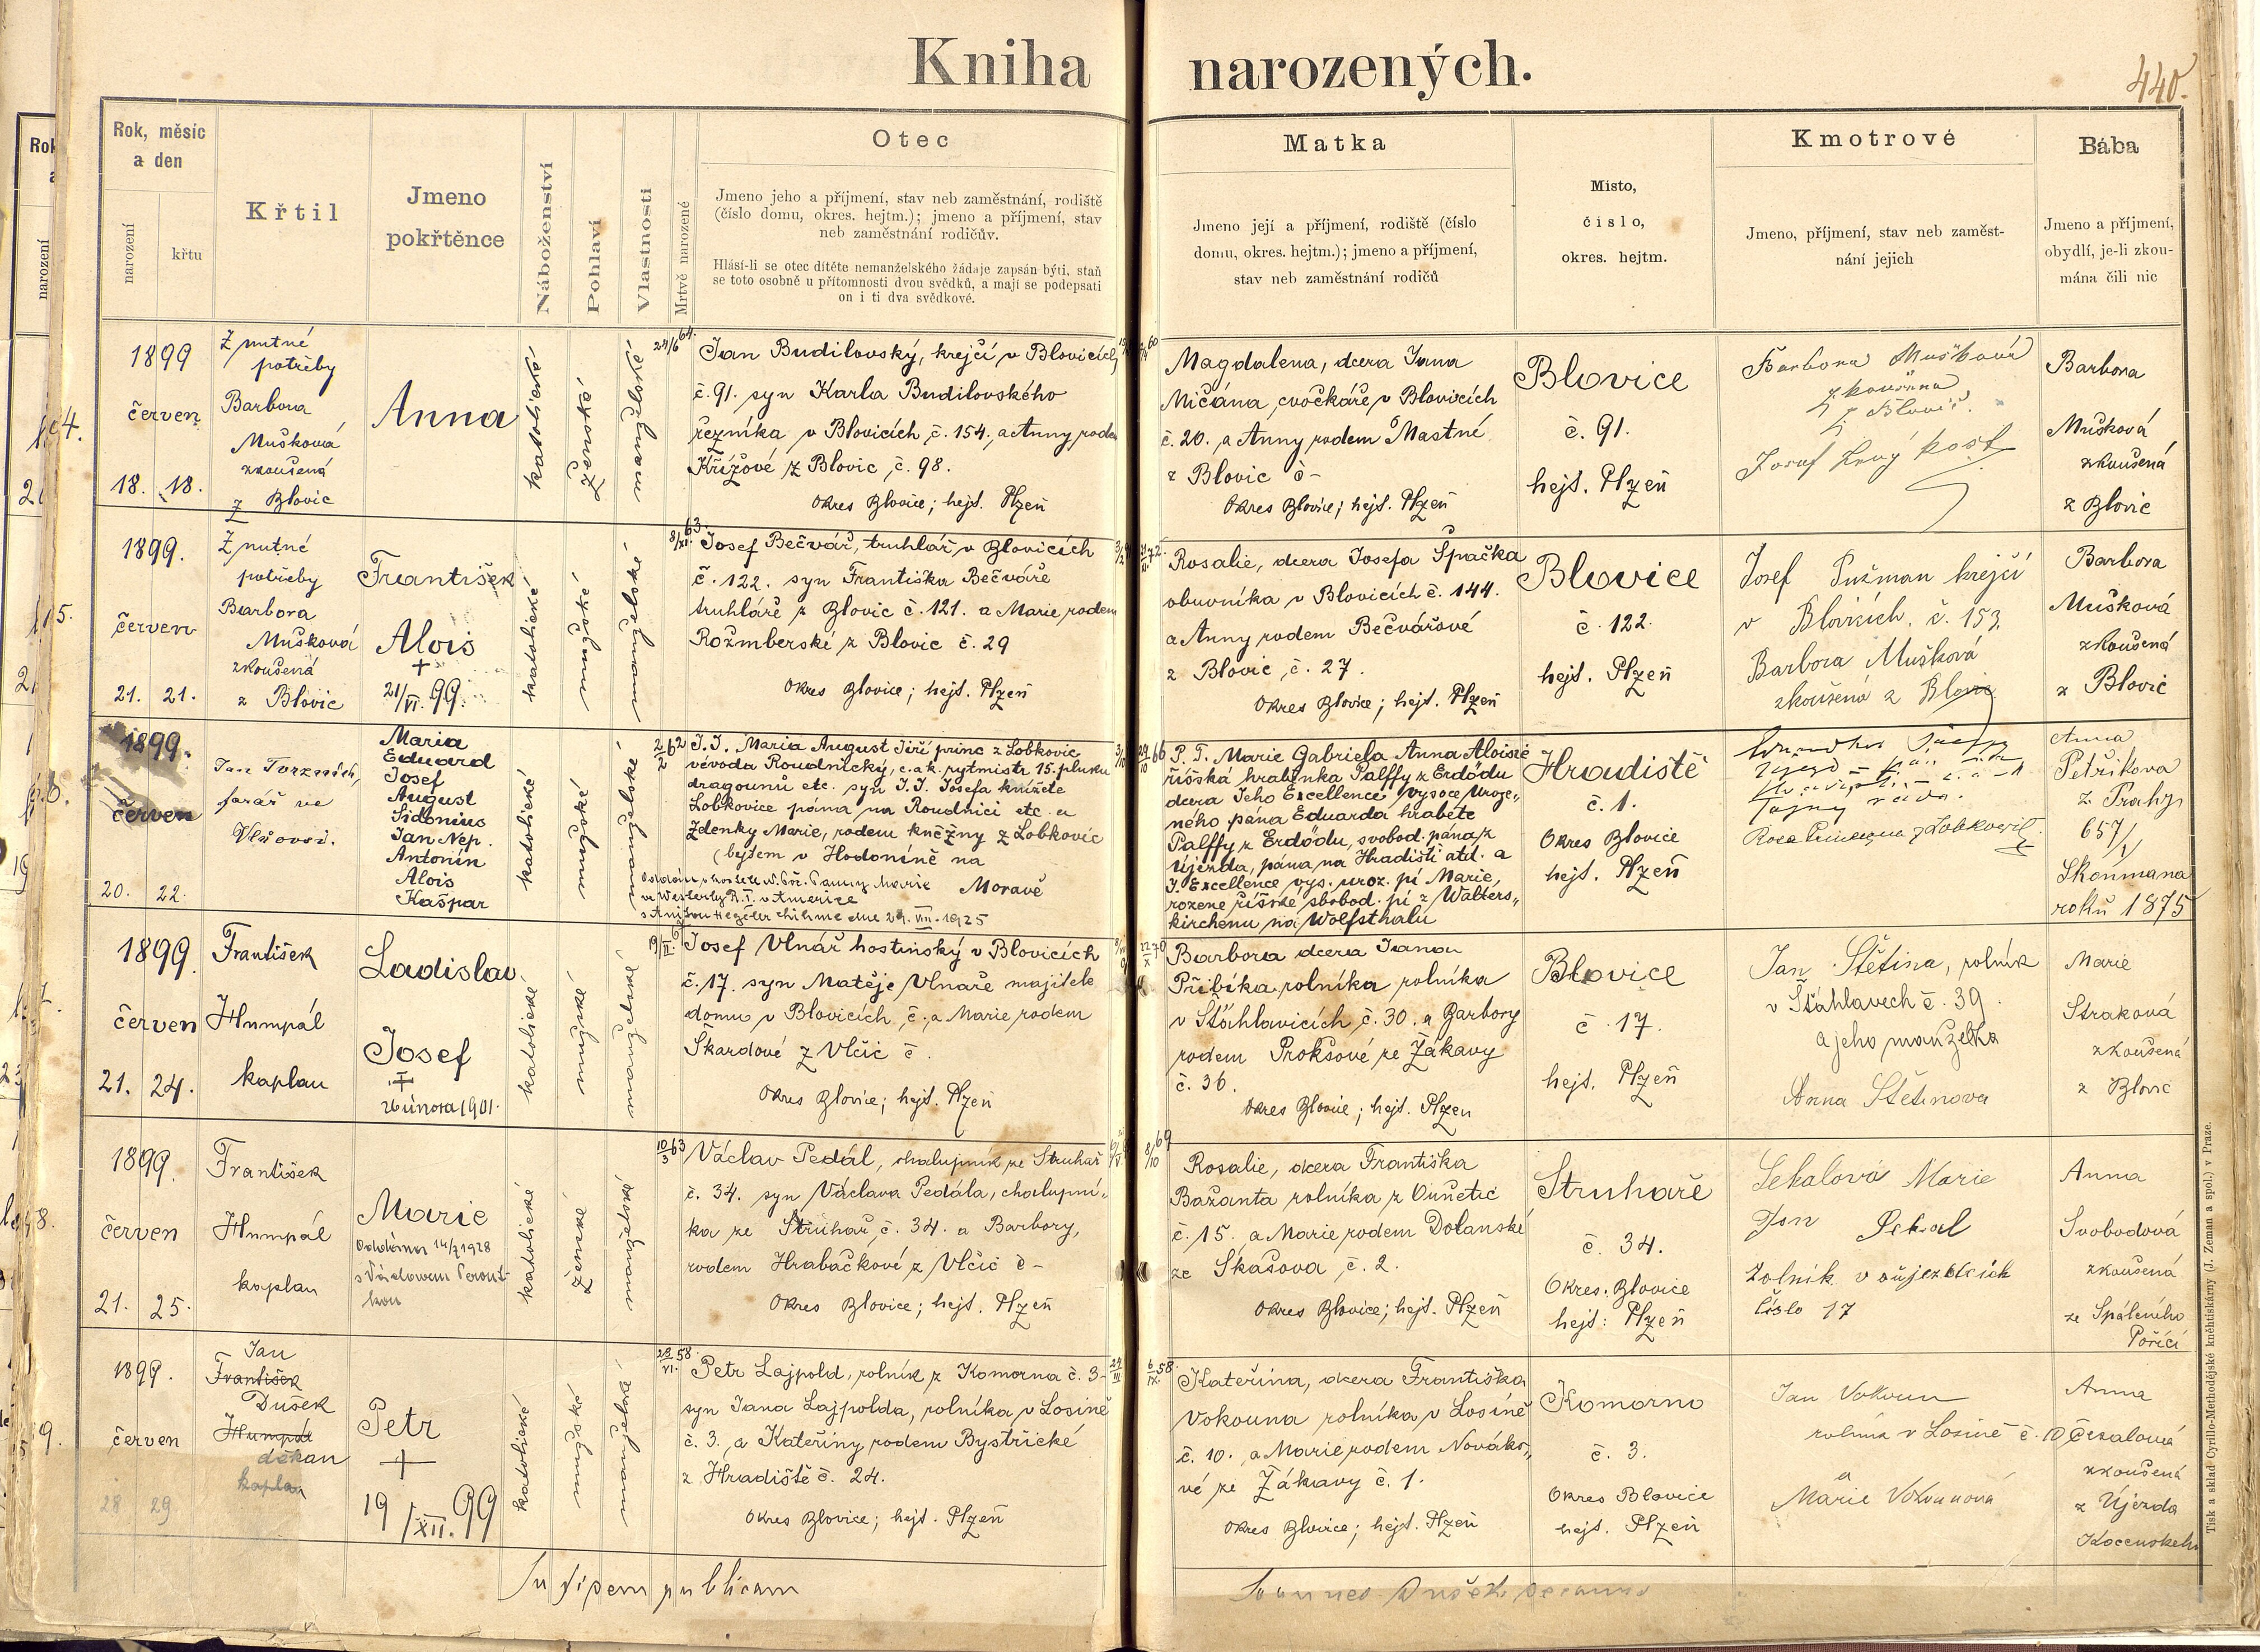 Kniha narozených.
440.
Rok, měsíc
a den
narození
křtu
Křtil
Jmeno
pokřtěnce
Náboženství
Pohlaví
Vlastnosti
Mrtvě narozené
Otec
Jmeno jeho a příjmení, stav neb zaměstnání, rodiště
(číslo domu, okres. hejtm.); jmeno a příjmení, stav
neb zaměstnání rodičův.
Hlásí-li se otec dítěte nemanželského žádaje zapsán býti, staň
se toto osobně u přítomnosti dvou svědků, a mají se podepsati
on i ti dva svědkové.
Matka
Jmeno její a příjmení, rodiště (číslo
domu, okres. hejtm.); jmeno a příjmení,
stav neb zaměstnání rodičů
Místo,
číslo,
okres. hejtm.
Kmotrové
Jmeno, příjmení, stav neb zaměst-
nání jejich
Bába
Jmeno a příjmení,
obydlí, je-li zkou-
mána čili nic
1899
červen
18. 18.
Z nutné
potřeby
Barbora
Mušková
zkoušená
z Blovic
Anna
katolické
ženské
manželské
24/6 64.
Jan Budilovský, krejčí v Blovicích
č. 91. syn Karla Budilovského
řezníka v Blovicích, č. 154., a Anny rodem
Křížové z Blovic, č. 98.
Okres Blovice; hejt. Plzeň
Magdalena, dcera Jana
Mičána, cvočkáře v Blovicích
č. 20. a Anny rodem Mastné
z Blovic č -
Okres Blovice; hejt. Plzeň
Blovice
č. 91.
hejt. Plzeň
Barbora Mušková
zkoušená
z Blovic.
Josef
Barbora
Mušková
zkoušená
z Blovic
1899.
červen
21. 21.
Z nutné
potřeby
Barbora
Mušková
zkoušená
z Blovic
František
Alois
+
21/VI. 99.
katolické
mužské
manželské
8/XI. 63.
Josef Bečvář, truhlář v Blovicích
č. 122. syn Františka Bečváře
truhláře z Blovic č. 121. a Marie rodem
Rožmberské z Blovic č. 29
Okres Blovice; hejt. Plzeň
Rosalie, dcera Josefa Špačka
obuvníka v Blovicích č. 144.
a Anny rodem Bečvářové
z Blovic, č. 27.
Okres Blovice; hejt. Plzeň
Blovice
č. 122.
hejt. Plzeň
Josef Pužman krejčí
v Blovicích. č. 153.
Barbora Mušková
zkoušená z Blovic
Barbora
Mušková
zkoušená
z Blovic
1899.
červen
20. 22.
Jan
farář ve
Maria
Eduard
Josef
August
Sidonius
Jan Nep.
Antonín
Alois
Kašpar
katolické
mužské
manželské
J. J. Maria August Jiří princ z Lobkovic
vévoda Roudnický, c. a k. rytmistr 15. pluku
dragounů etc. syn J. J. Josefa knížete
Lobkovice pána na Roudnici etc. a
Zdenky Marie, rodem kněžny z Lobkovic
(bytem v Hodoníně na
Moravě
Oddán v kostele N. Sv. Panny Marie
ve Westerly R. I. v Americe
29. VIII. 1925
P. T. Marie Gabriela Anna Aloisie
říšská hraběnka Palffy z Erdödu
dcera Jeho Excellence vysoce uroze-
ného pána Eduarda hraběte
Palffy z Erdödu, svobod. pána z
Újezda, pána na Hradišti atd. a
J. Excellence vys. uroz. pí Marie,
rozené říšské svobod. pí z Walters-
kirchenu na Wolfsthalu
Hradiště
č. 1.
Okres Blovice
hejt. Plzeň
Tajný rada.
Anna
Petříkova
z Prahy
657/1
Skoumána
roku 1875
1899.
červen
21. 24.
František
Humpál
kaplan
Ladislav
Josef
+
26 února 1901.
katolické
mužské
manželské
Josef Vlnář hostinský v Blovicích
č. 17. syn Matěje Vlnaře majitele
domu v Blovicích, č., a Marie rodem
Škardové z Vlčic č.
Okres Blovice; hejt. Plzeň
Barbora dcera Jana
Přibíka rolníka rolníka
v Šťáhlavicích, č. 30. a Barbory
rodem Proksové ze Žákavy
č. 36.
Okres Blovice; hejt. Plzeň
Blovice
č. 17.
hejt. Plzeň
Jan Štětina, rolník
v Šťáhlavech č. 39.
a jeho manželka
Anna Štětinova
Marie
Straková
zkoušená
z Blovic
1899.
červen
21. 25.
František
Humpál
kaplan
Marie
Oddána 14/7 1928
s Václavem
katolické
ženské
manželské
10/3 63
Václav Pedál, chalupník ze Struhař
č. 34. syn Václava Pedála, chalupní-
ka ze Struhař, č. 34. a Barbory,
rodem Hrabačkové z Vlčic č -
Okres Blovice; hejt. Plzeň
8/10 69
Rosalie, dcera Františka
Bažanta rolníka z Vunětic
č. 15. a Marie rodem Dolanské
ze Skašova, č. 2.
Okres Blovice; hejt. Plzeň
Struhaře
č. 34.
Okres: Blovice
hejt: Plzeň
Sekalová Marie
Jan Sekal
rolník v oujezdcích
číslo 17
Anna
Svobodová
zkoušená
ze Spáleného
Poříčí
1899.
červen
28 29
Jan
František
Dušek
Humpál
děkan
kaplan
Petr
+
19/XII. 99
katolické
mužské
manželské
28/VI. 58.
Petr Lajpold, rolník z Komorna č. 3-
syn Jana Lajpolda, rolníka v Losině
č. 3. a Kateřiny rodem Bystřické
z Hradiště č. 24.
Okres Blovice; hejt. Plzeň
6/IX. 58.
Kateřina, dcera Františka
Vokouna rolníka v Losině
č. 10. a Marie rodem Nováko-
vé ze Žákavy č. 1.
Okres Blovice; hejt. Plzeň
Komorno
č. 3.
Okres Blovice
hejt. Plzeň
Jan Vokoun
rolník v Losině č. 10
a
Marie Vokounová
Anna
Čekalová
zkoušená
z Újezda
In fidem publicam
Joannes Dušek decanus
Tisk a sklad Cyrillo-Methodějské knéhtiskárny (J. Zeman a spol.) v Praze.